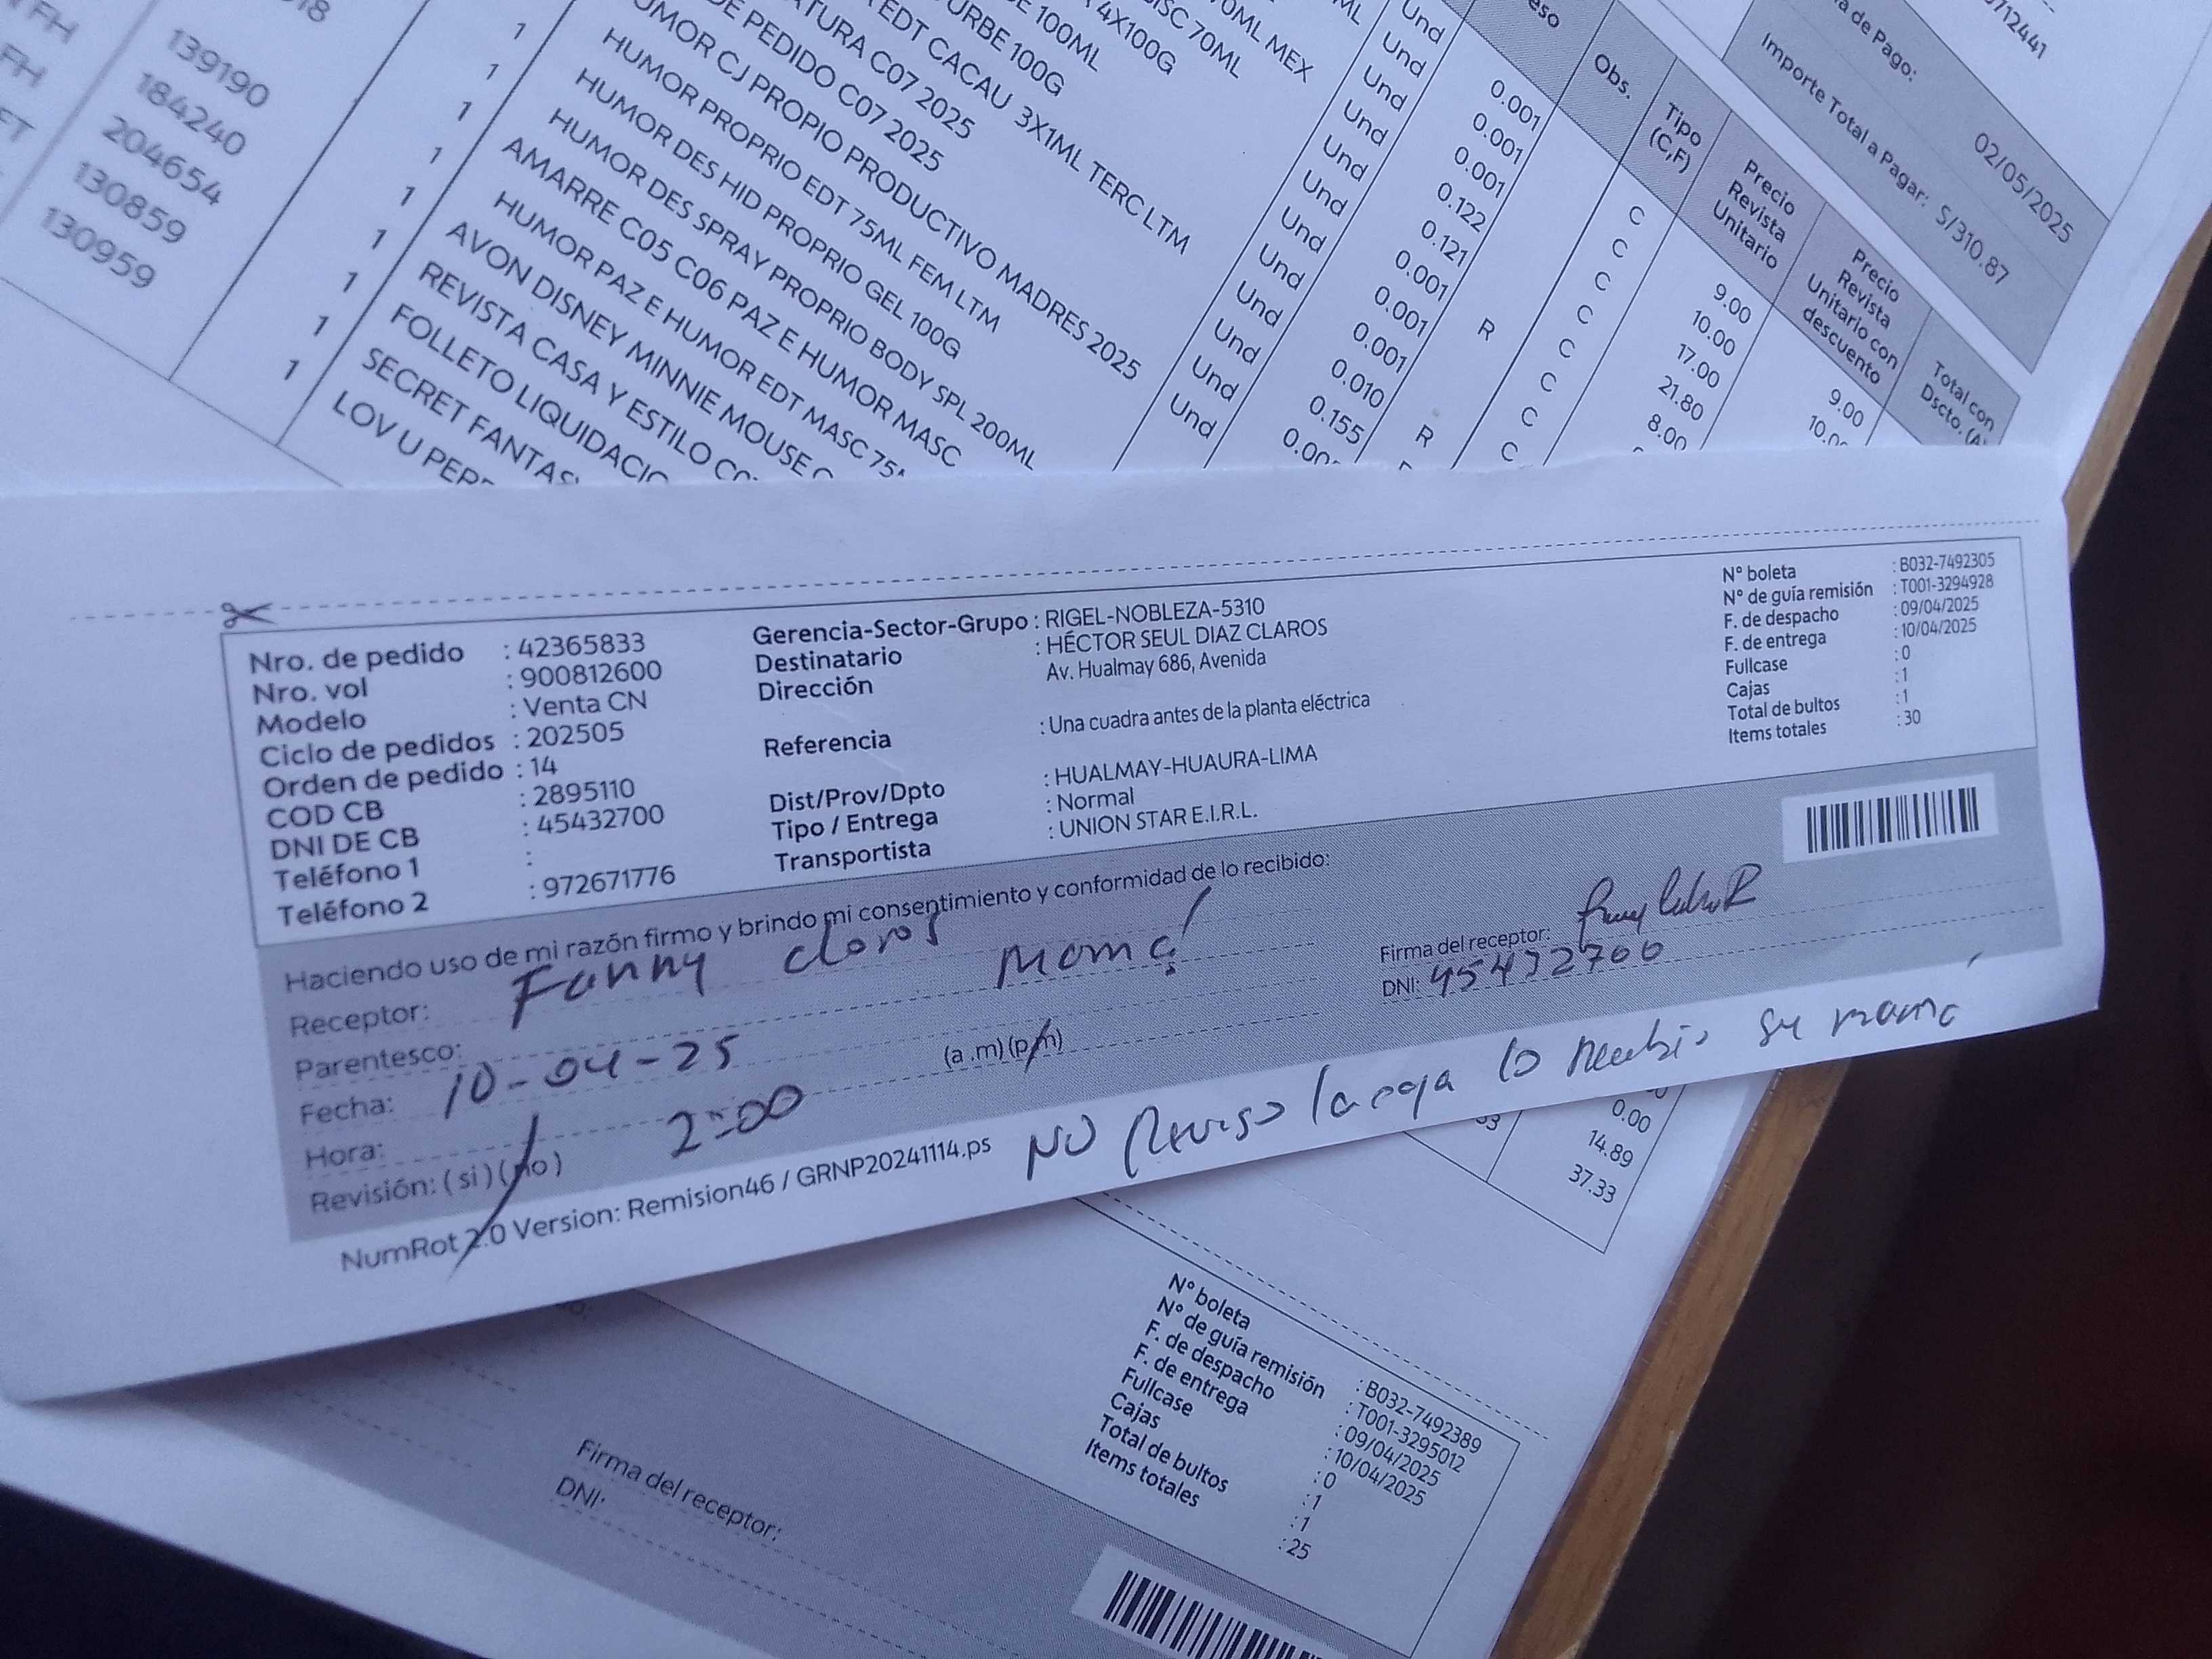 139190
184240
204654
130859
130959
TURA C07 2025
DE PEDIDO C07 2025
UMOR CJ PROPIO PRODUCTIVO MADRES 2025
HUMOR PROPRIO EDT 75ML FEM LTM
HUMOR DES HID PROPRIO GEL 100G
HUMOR DES SPRAY PROPRIO BODY SPL 200ML
AMARRE C05 C06 PAZ E HUMOR MASC
HUMOR PAZ E HUMOR EDT MASC 75
AVON DISNEY MINNIE MOUSE
REVISTA CASA Y ESTILO
FOLLETO LIQUIDACIO
SECRET FANTAS
LOV U PER
EDT CACAU 3X1ML TERC LTM
URBE 100G
E 100ML
4X100G
ISC 70ML
0ML MEX
Und
Und
Und
Und
Und
Und
Und
Und
Und
Und
Und
Und
0.001
0.001
0.001
0.122
0.121
0.001
0.001
0.001
0.010
0.155
R
R
C
C
C
C
C
C
C
C
eso
Obs.
Tipo
(C,F)
Precio
Revista
Unitario
Precio
Revista
Unitario con
descuento
Total con
Dscto.
9.00
10.00
17.00
21.80
8.00
9.00
de Pago:
02/05/2025
Importe Total a Pagar: S/310.87
712441
Nro. de pedido : 42365833
Nro. vol : 900812600
Modelo : Venta CN
Ciclo de pedidos : 202505
Orden de pedido : 14
COD CB : 2895110
DNI DE CB : 45432700
Teléfono 1 :
Teléfono 2 : 972671776
Gerencia-Sector-Grupo : RIGEL-NOBLEZA-5310
Destinatario : HÉCTOR SEUL DIAZ CLAROS
Dirección Av. Hualmay 686, Avenida
Referencia : Una cuadra antes de la planta eléctrica
Dist/Prov/Dpto : HUALMAY-HUAURA-LIMA
Tipo / Entrega : Normal
Transportista : UNION STAR E.I.R.L.
N° boleta : B032-7492305
N° de guía remisión : T001-3294928
F. de despacho : 09/04/2025
F. de entrega : 10/04/2025
Fullcase : 0
Cajas : 1
Total de bultos : 1
Items totales : 30
Haciendo uso de mi razón firmo y brindo mi consentimiento y conformidad de lo recibido:
Receptor: Fanny claros
Parentesco: Mamá
Fecha: 10-04-25
Hora: 2:00 (a .m) (p.m)
Revisión: ( si ) ( no )
Firma del receptor:
DNI: 45432700
NumRot 2.0 Version: Remision46 / GRNP20241114.ps
NO Reviso la caja lo Recibio su mamá
0.00
14.89
37.33
N° boleta : B032-7492389
N° de guía remisión : T001-3295012
F. de despacho : 09/04/2025
F. de entrega : 10/04/2025
Fullcase : 0
Cajas : 1
Total de bultos : 1
Items totales : 25
Firma del receptor:
DNI: